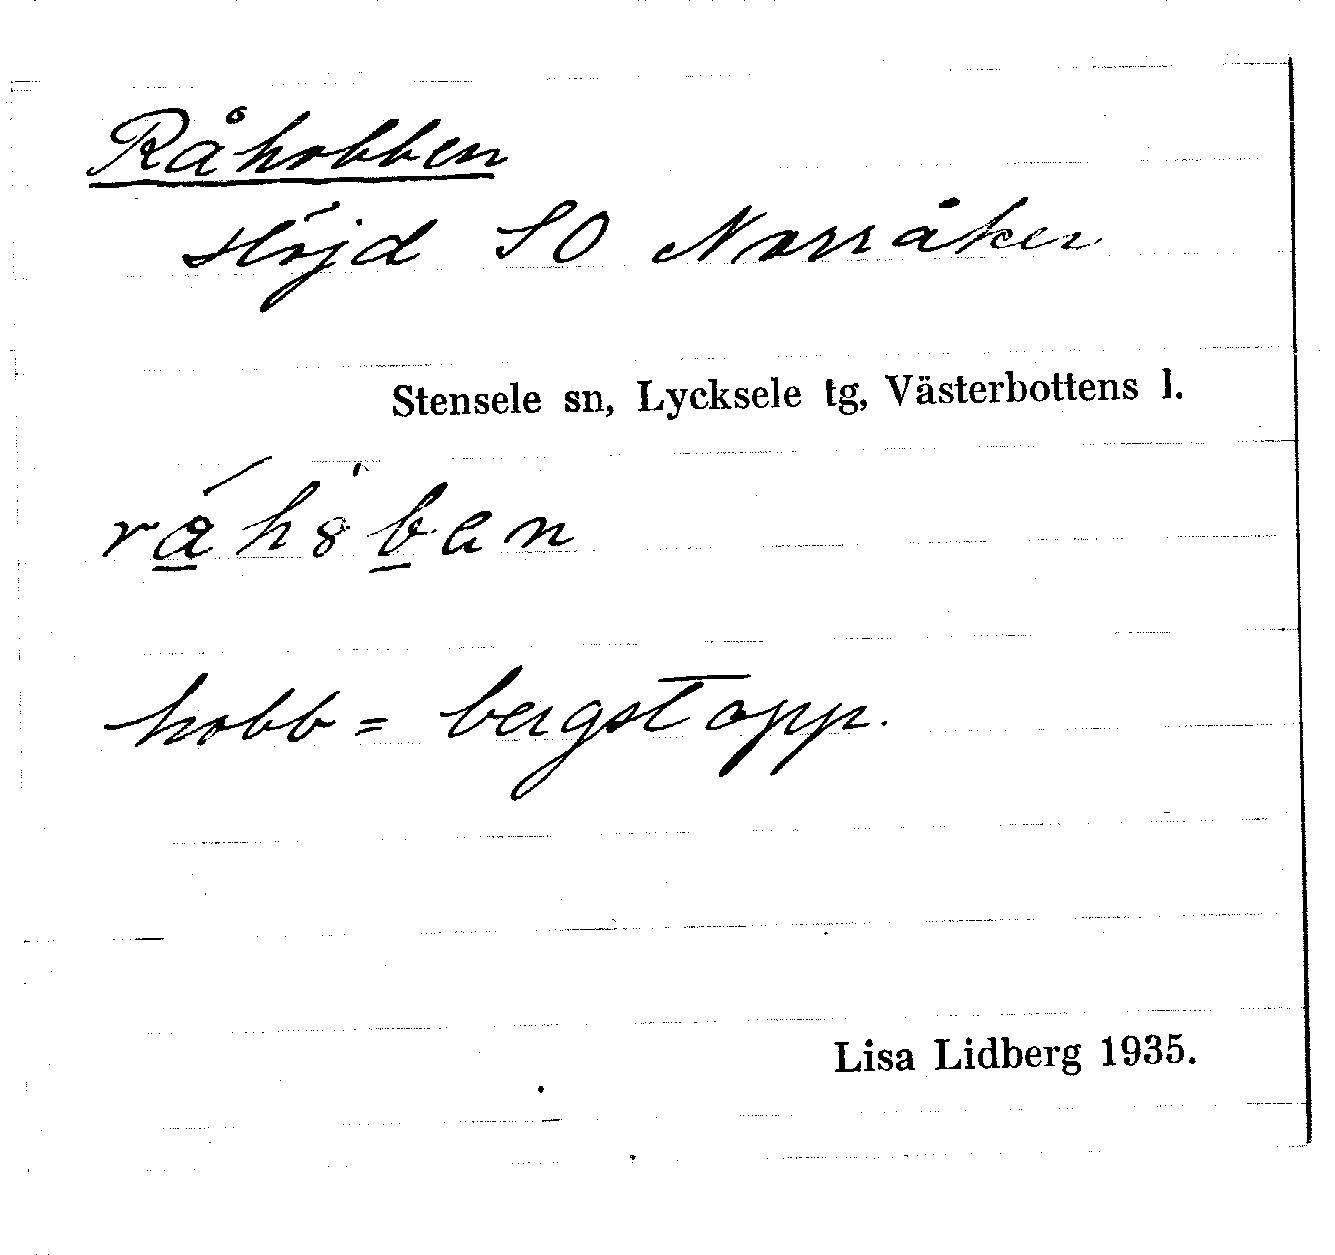 Råhobben
Höjd SO Norråker
Stensele sn, Lycksele tg, Västerbottens l.
hobb = bergstopp.
Lisa Lidberg 1935.